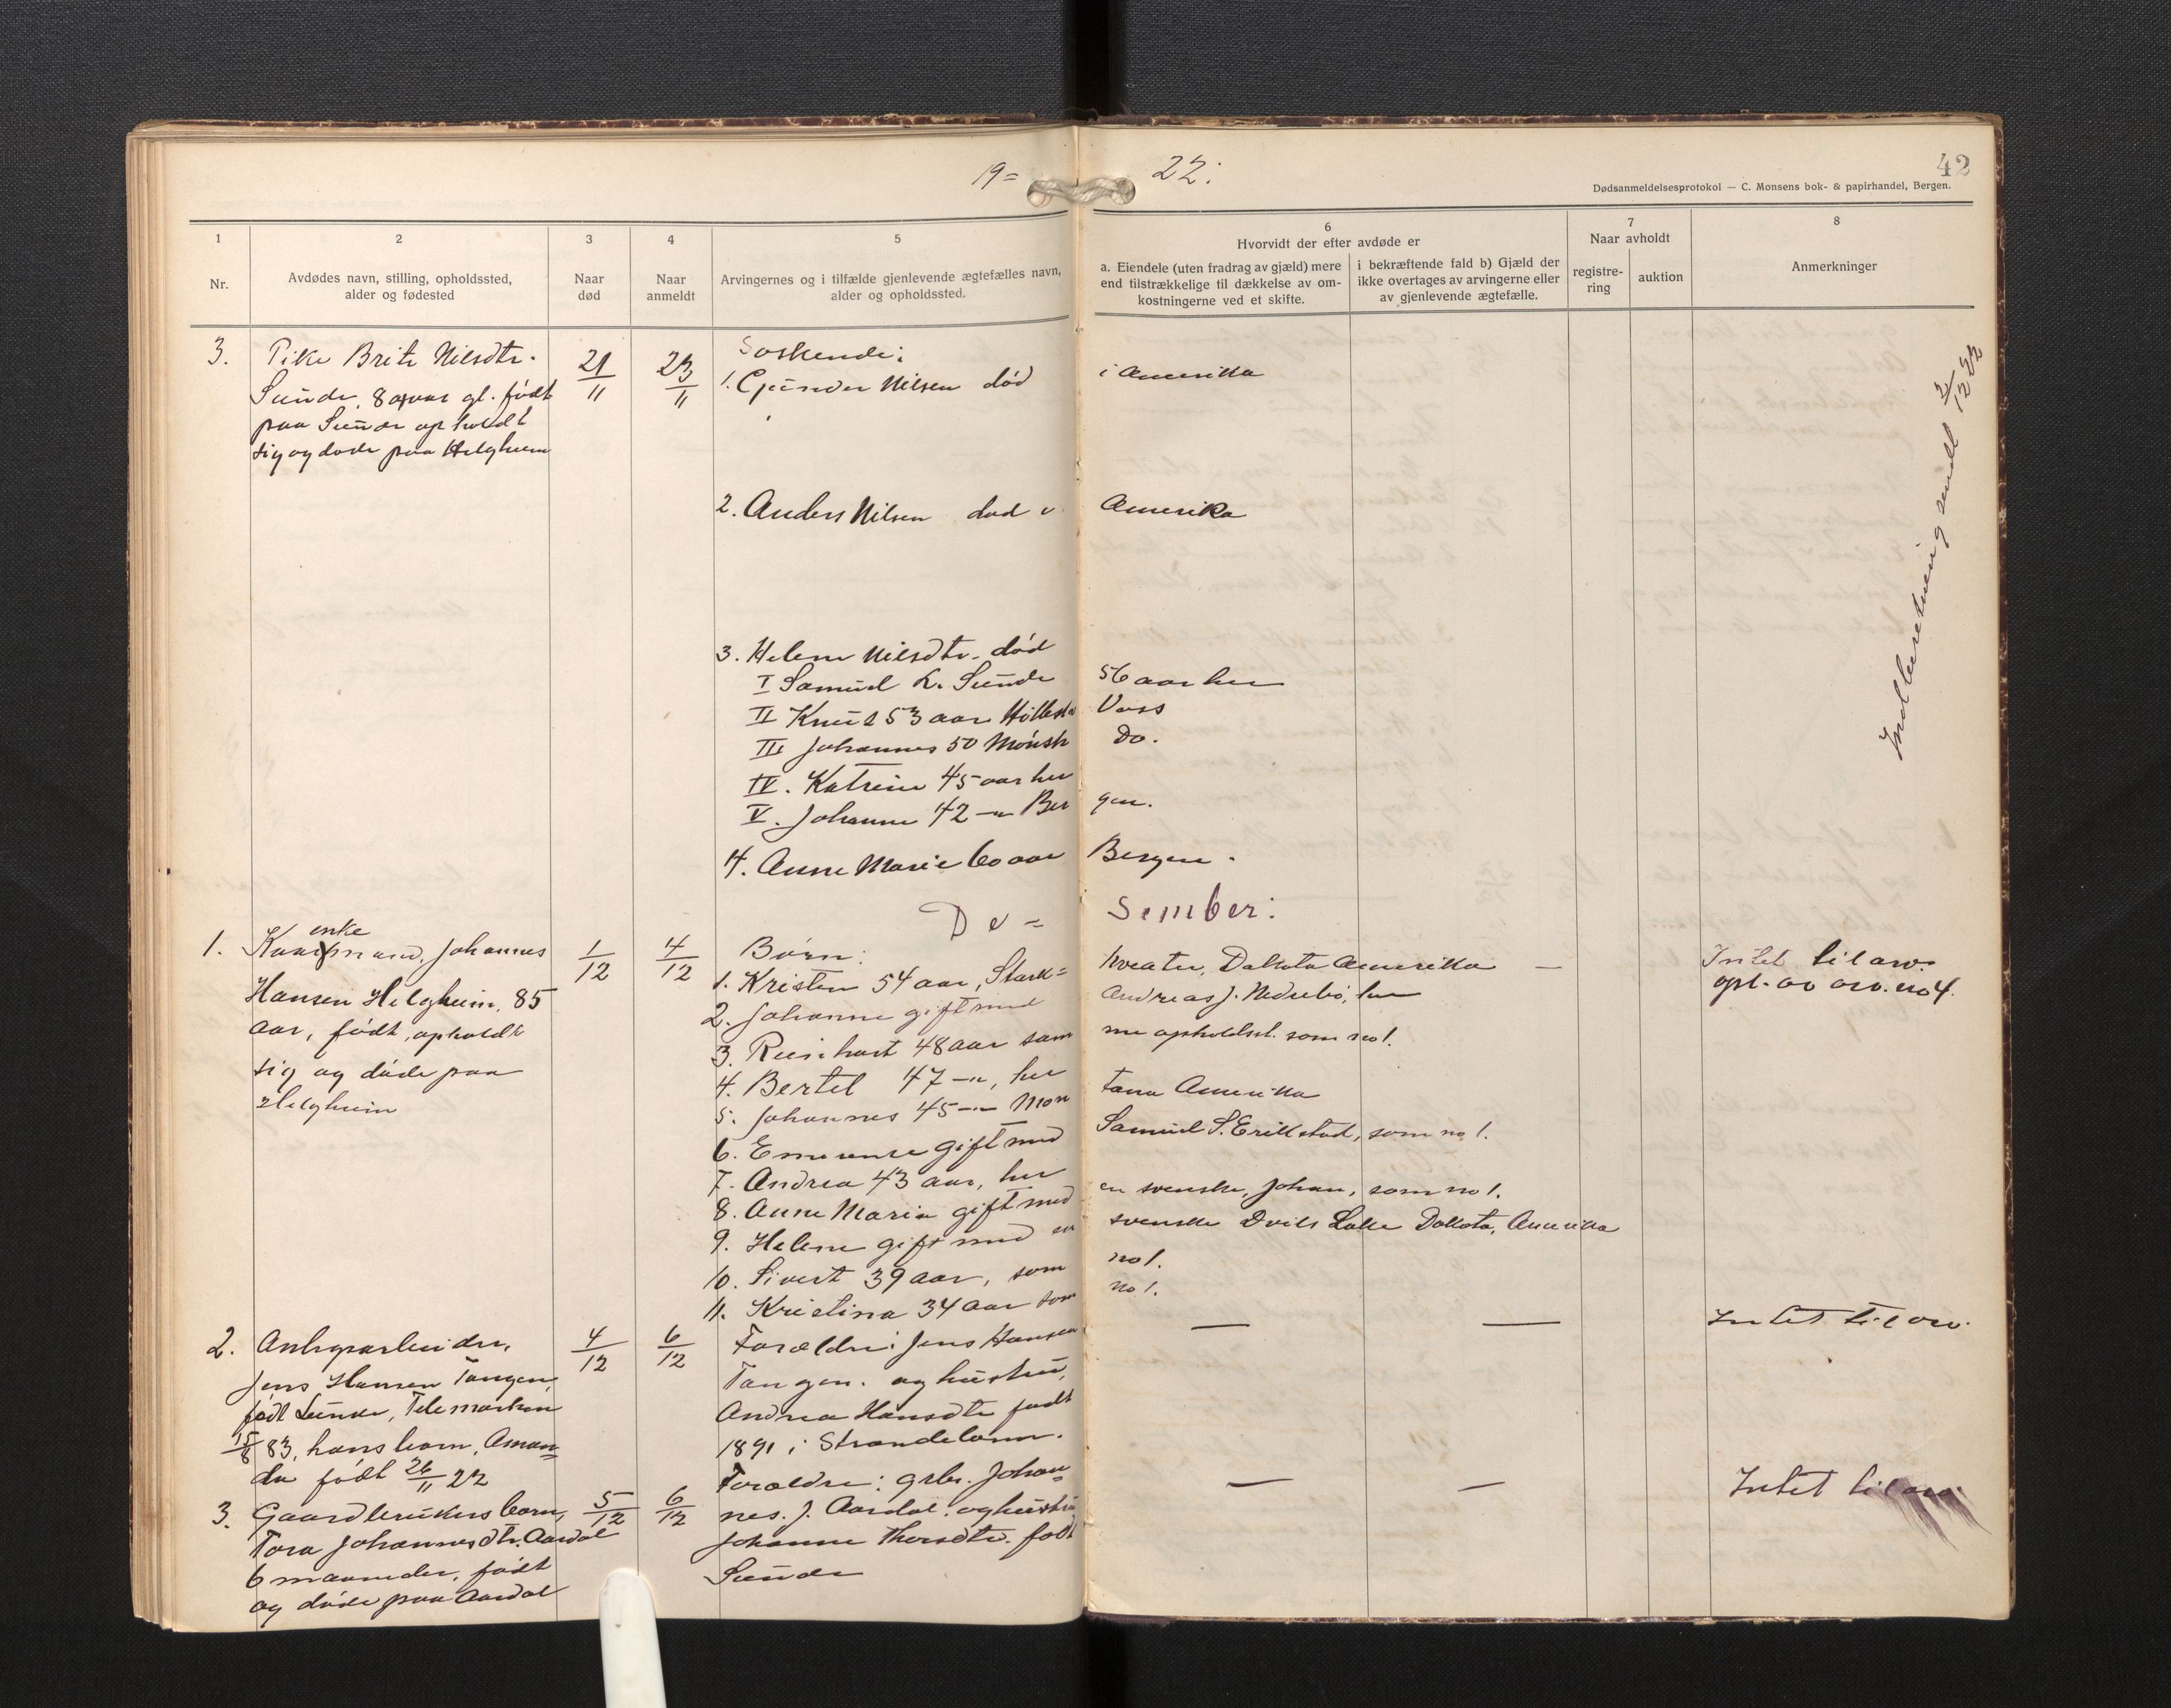 19= 22:
42
Dødsanmeldelsesprotokol — C. Monsens bok- & papirhandel, Bergen.
1
Nr.
2
Avdødes navn, stilling, opholdssted,
alder og fødested
3
Naar
død
4
Naar
anmeldt
5
Arvingernes og i tilfælde gjenlevende ægtefælles navn,
alder og opholdssted.
6
Hvorvidt der efter avdøde er
a. Eiendele (uten fradrag av gjæld) mere
end tilstrækkelige til dækkelse av om-
kostningerne ved et skifte.
i bekræftende fald b) Gjæld der
ikke overtages av arvingerne eller
av gjenlevende ægtefælle.
7
Naar avholdt
registre-
ring
auktion
8
Anmerkninger
3. Pike Brite Nilsdtr.
Sunde, 80 aar gl. født
paa Sunde opholdt
sig og døde paa Helgheim
21/11
23/11
Søskende:
1. Gunder Nilsen død i Amerika
2. Anders Nilsen død i Amerika
3. Helene Nilsdtr. død
I Samuel L. Sunde 56 aar her
II Knut 53 aar Voss
III Johannes 50 Do.
IV. Katrine 45 aar her
V. Johanne 42 -"- Bergen.
4. Anne Marie 60 aar Bergen.
Indberetning sendt 2/12 22
De=sember:
1. Kaarmand, enke Johannes
Hansen Helgheim, 85
aar, født, opholdt
sig og døde paa
Helgheim
1/12
4/12
Børn:
1. Kristen 54 aar, Stark=weater, Dakota Amerika —
2. Johanne gift med Andreas J. Nedrebø, her
3. Reinhart 48 aar samme opholdst. som no 1.
4. Bertel 47 -"-, her
5. Johannes 45 -"- Montana Amerika
6. Emerense gift med Samuel S. Erikstad, som no 1.
7. Andrea 43 aar, her
8. Anne Maria gift med en svenske, Johan, som no 1.
9. Helene gift med en svenske Dvils Lake Dakota, Amerika
10. Sivert 39 aar, som no 1.
11. Kristina 34 aar som no 1.
Intet til arv.
opl. av arv. no 4.
2. Anlegsarbeider,
Jens Hansen Tangen,
født Lunde, Telemarken
15/8 83, hans barn, Aman=
da født 26/11 22
4/12
6/12
Forældre: Jens Hansen
Tangen. og hustru,
Andrea Hansdtr født
1891 i Strandebarm.
— —
Intet til arv.
3. Gaardbrukers barn,
Tora Johannesdtr. Aardal
6 maaneder, født
og døde paa Aardal
5/12
6/12
Forældre: grbr. Johan=
nes. J. Aardal. og hustru
Johanne Thorsdtr. født
Sunde
— —
Intet til arv.